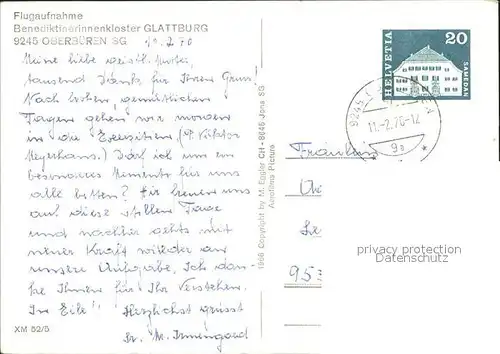 Flugaufnahme
Benediktinerinnenkloster GLATTBURG
9245 OBERBÜREN SG
10.2.70
Meine liebe geistl.
tausend Dank für Ihren Gruss!
Nach frohen, gemütlichen
Tagen gehen wir morgen
in die Exerzitien (P. Viktor
Meyerhans.) Darf ich um ein
besonderes Memento für uns
alle bitten? Wir freuen uns
auf diese stillen Tage
und nachher gehts mit
neuer Kraft wieder an
unsere Aufgabe. Ich dan-
ke Ihnen für Ihr Verstehen.
In Eile! Herzlichst grüsst
Sr. M. Irmengard
XM 52/5
1966 Copyright by M. Eggler CH - 8645 Jona SG
Aerofilms Picture
HELVETIA
20
SAMEDAN
9245
11.-2.70-12
9a
Fräulein
953
privacy protection
Datenschutz